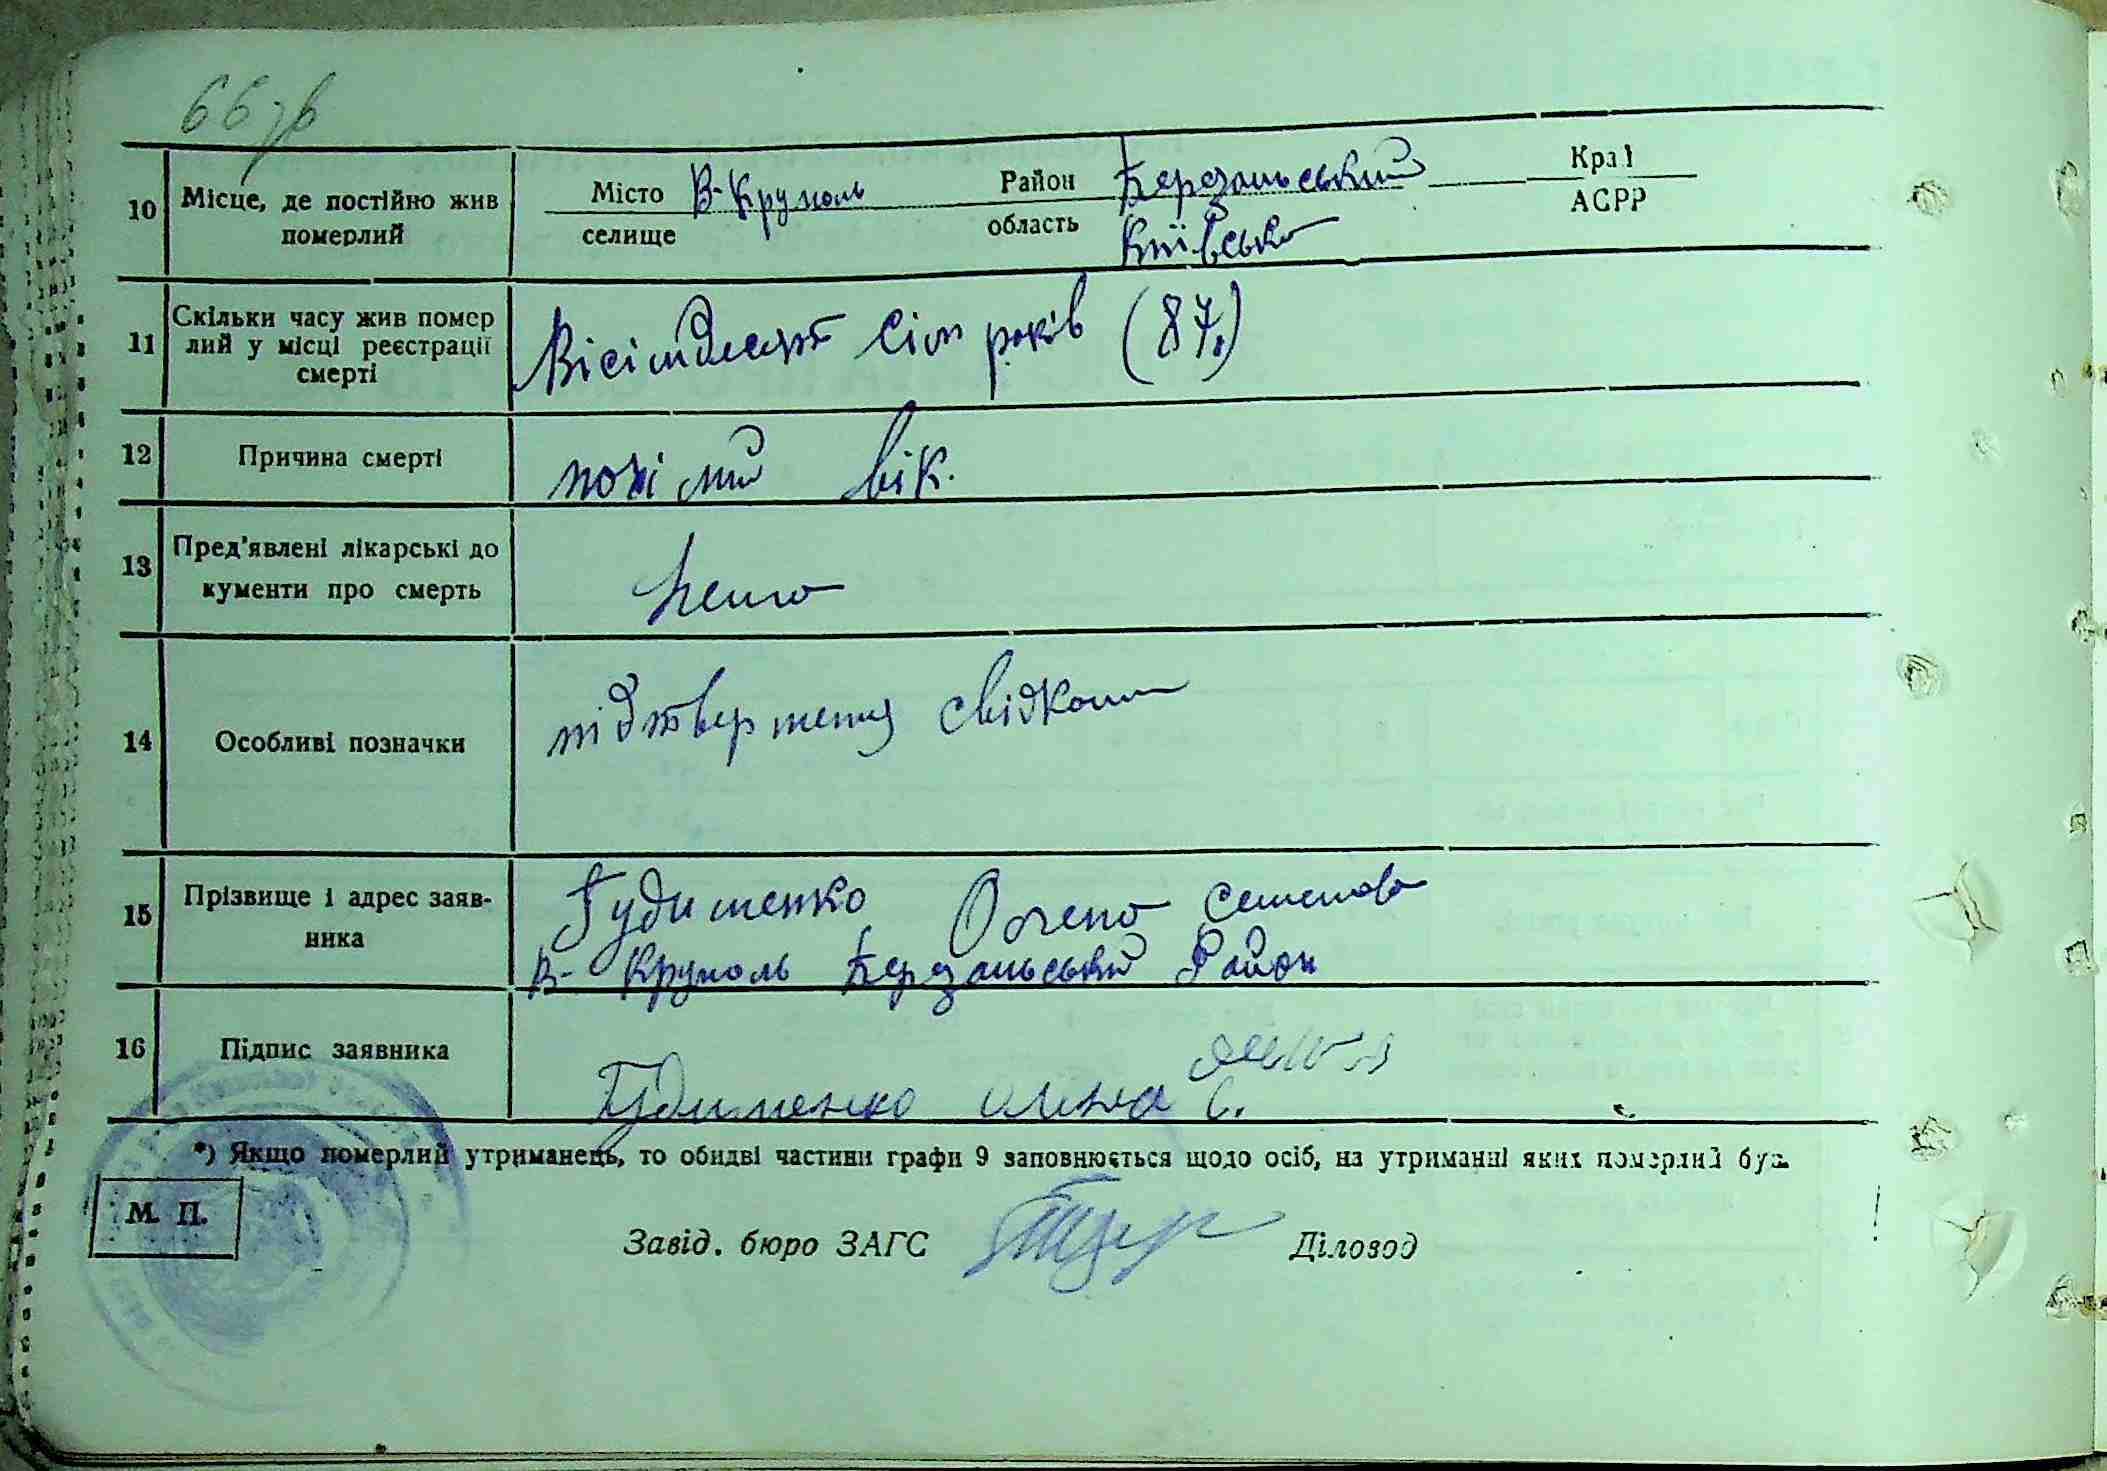 66 зв
10 Місце, де постійно жив Місто В-Круполь Район Березанський Краї
померлий селище область Київська АСРР
11 Скільки часу жив помер
лий у місці реєстрації
смерті
Вісімдесят сім років (87.)
12 Причина смерті похілий вік.
13 Пред'явлені лікарські до
кументи про смерть
нема
14 Особливі позначки підтвержения свідками
15 Прізвище і адрес заяв-
ника
Гудименко Олена Семенова
В- Круполь Березанський Район
16 Підпис заявника Гудименко олена С.
*) Якщо померлий утриманець, то обидві частини графи 9 заповнюється щодо осіб, на утриманні яких померлий був.
М. П.
Завід. бюро ЗАГС Діловод